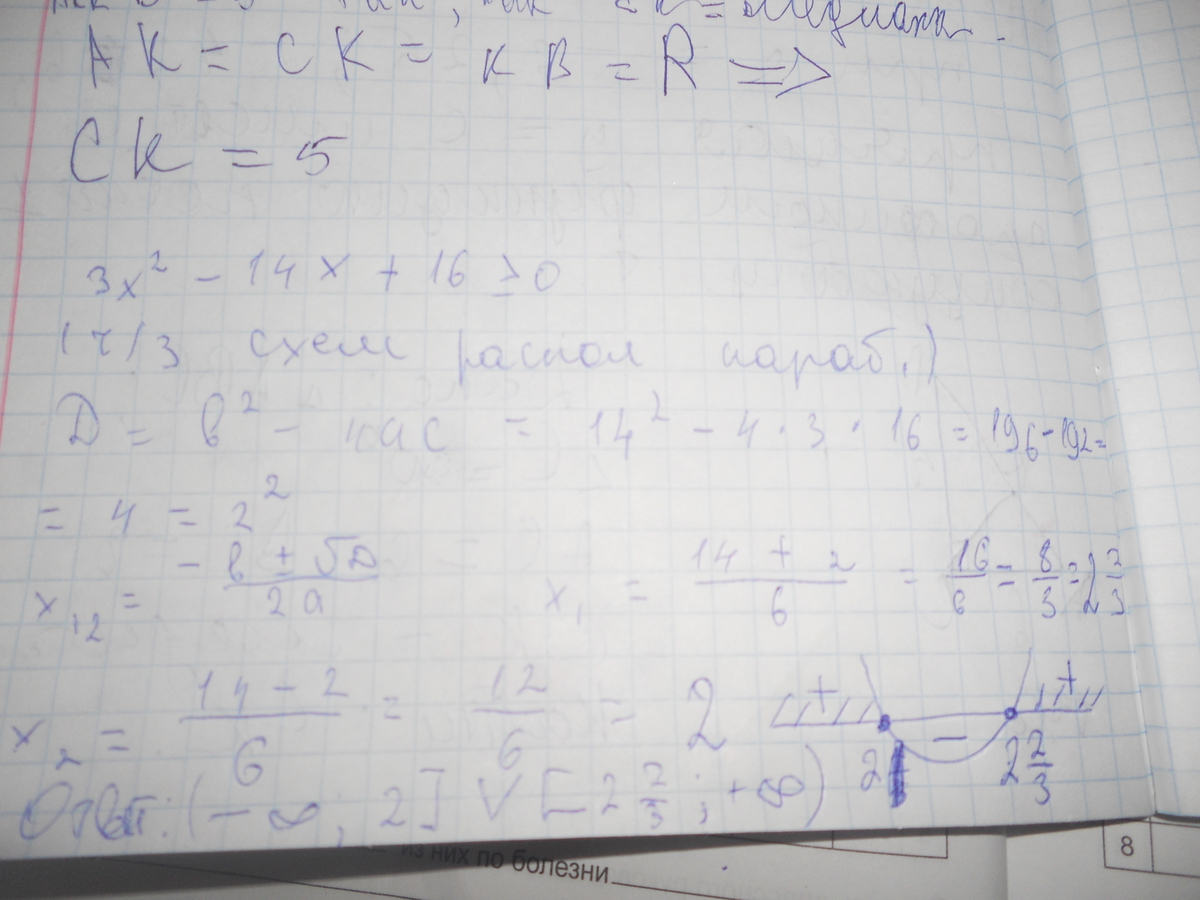 медиана.
AK = CK = KB = R =>
CK = 5
3x² - 14x + 16 ≥ 0
схем распол параб.)
D = b² - 4ac = 14² - 4·3·16 = 196-192=
= 4 = 2²
x₁₂ = -b ± √D / 2a   x₁ = 14 + 2 / 6 = 16/6 = 8/3 = 2 2/3
x₂ = 14 - 2 / 6 = 12/6 = 2
+ - +
2   2 2/3
Ответ: (-∞; 2] V [2 2/3; +∞)
из них по болезни
8